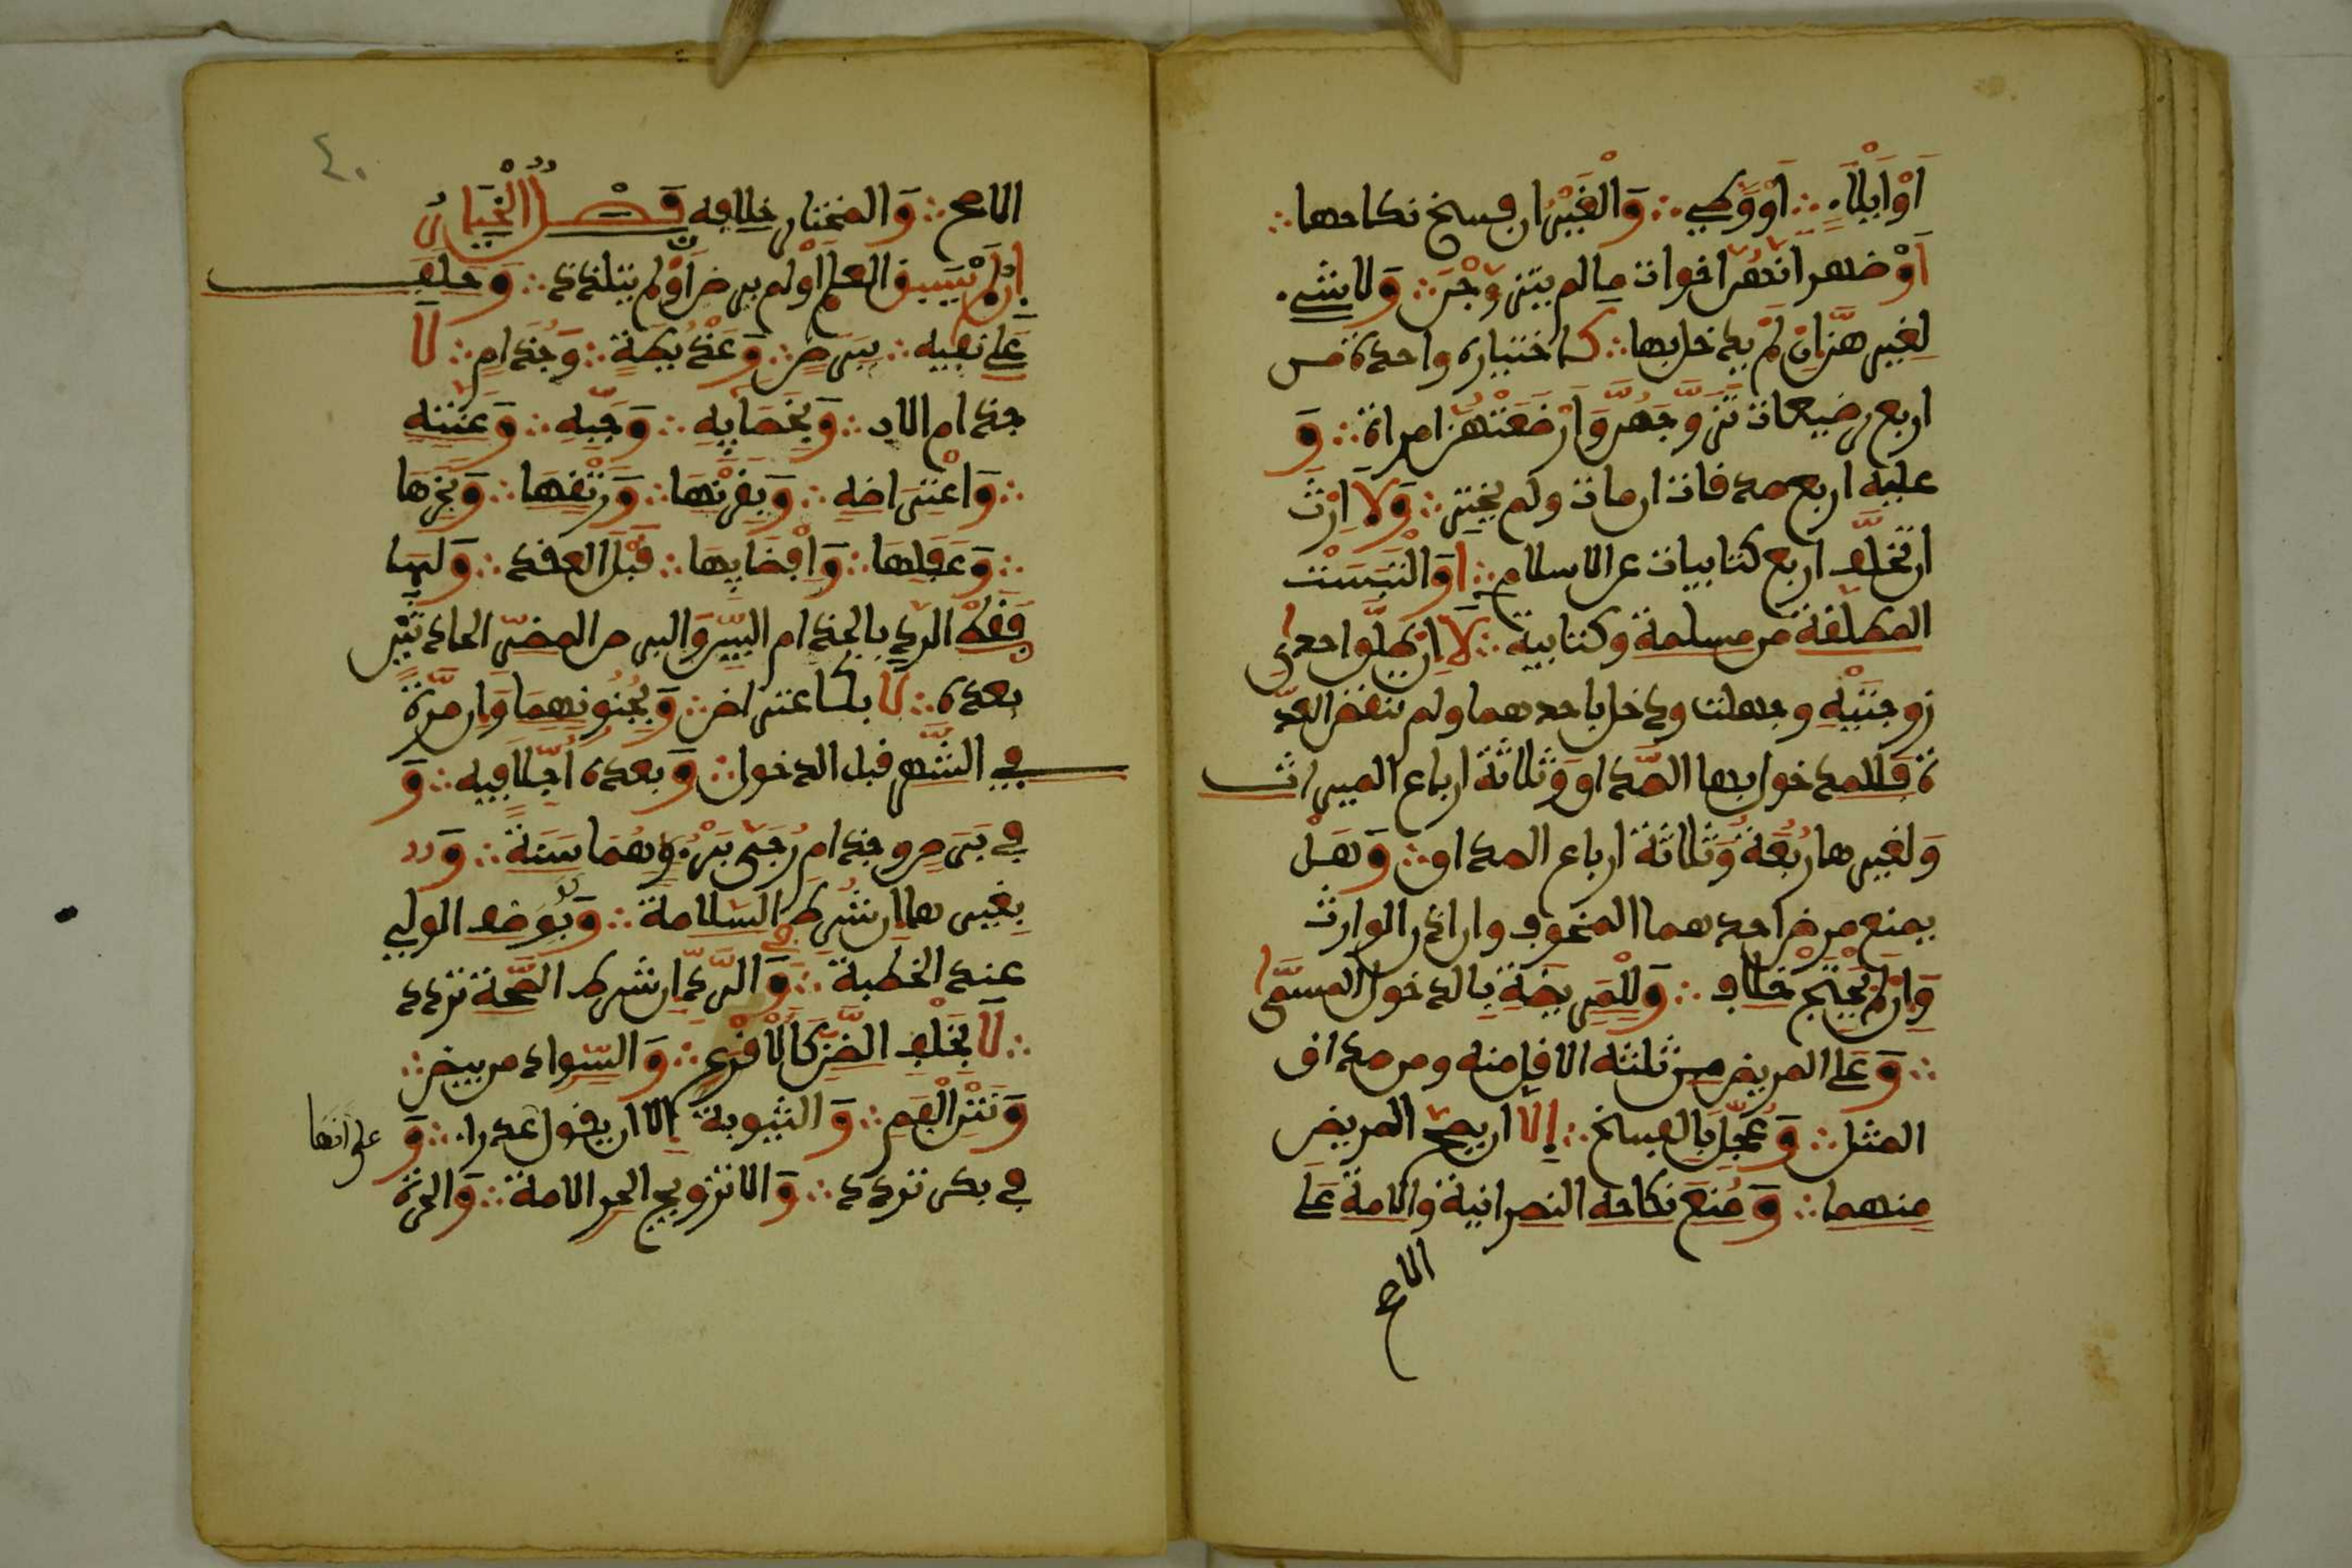 اَوْ اَيْلَاءٍ ∴ اَوْ وَطْءٍ ∴ وَالْغَيْرُ ان فسخ نكاحها ∴
اَوْ ظهر انَّهُنَّ اخوات ما لم يتزوَّجْنَ ∴ وَلا شيء
لغيرهنَّ اِنْ لَمْ يدخل بها ∴ كاختياره واحدة من
اربع رضيعات تَزَوَّجَهُنَّ وَاَرْضَعَتْهُنَّ امراة ∴ وَ
عليه اربع صدقات ان مات ولم يختر ∴ وَلَا اِرْثَ
ان تخلَّف اربع كتابيات عن الاسلام ∴ اَوِ الْتَبَسَتْ
المطلقة من مسلمة وكتابية ∴ لَا اِنْ طَلَّقَ احدى
زوجتَيْهِ وجهلت ودخل باحدهما ولم تنقض العدّ
ة فَللمدخول بها الصَّداق وَثلاثة ارباع الميراث
وَلغيرها رُبُعُهُ وَثلاثة ارباع الصداق ∴ وَهَلْ
يمنع مرض احدهما المخوف وان اذن الوارث
وَاِنْ لَمْ يَحْتَجْ خلاف ∴ وَلِلْمَرِيضَةِ بالدخول المسَمَّى
∴ وَعَلَى المريض من ثلثه الاقل منه ومن صداق
المثل ∴ وَعُجِّلَ بِالفسخ ∴ اِلَّا ان يصح المريض
منهما ∴ وَمُنِعَ نكاحه النصرانية وَالامة عَلَى
الاصح
٤٠
الاصح ∴ وَالمختار خلافه فَصْلٌ اَلْخِيَارُ
اِنْ لَمْ يَسبق العلم اَوْ لم يرض اَوْ لم يتلذذ ∴ وَحلف
عَلَى نفيه ∴ ببرص ∴ وَعَذْيَطَةٍ ∴ وَجُذَامٍ ∴ لَا
جذام الاب ∴ وَبِخَصَايِهِ ∴ وَجَبِّهِ ∴ وَعُنَّتِهِ
∴ وَاعْتِرَاضِهِ ∴ وَبِقَرْنِهَا ∴ وَرَتْقِهَا ∴ وَبَخَرِهَا
∴ وَعَفَلِهَا ∴ وَاِفْضَايِهَا ∴ قَبْلَ العقد ∴ وَلَهَا
فَقَطْ الرد بالجذام البَيِّن وَالبرص المضرّ الحادثَيْنِ
بعده ∴ لَا بكاعتراض ∴ وَبِجُنُونِهِمَا وَان مرَّة
في الشَّهر قبل الدخول ∴ وَبعده اُجِّلَا فيه ∴ وَ
في بَرَصٍ وجذام رُجِيَ بُرْؤُهُمَا سَنَةً ∴ وَ
بغيرهما ان شُرِطَ السَّلامة ∴ وَلَوْ بوصف الولي
عند الخطبة ∴ وَفي الرَّدِّ ان شرط الصِّحَّة تردد
∴ لَا بِخُلْفِ الظَّنِّ كَالْقَرَعِ ∴ وَالسَّواد من بيض ∴
وَنَتْنِ الْفَمِ ∴ وَالثيوبة اِلَّا ان يقول عذراء ∴ وَ
على انها
في بكر تردد ∴ وَالا تزويج الحر الامة ∴ وَالحرة